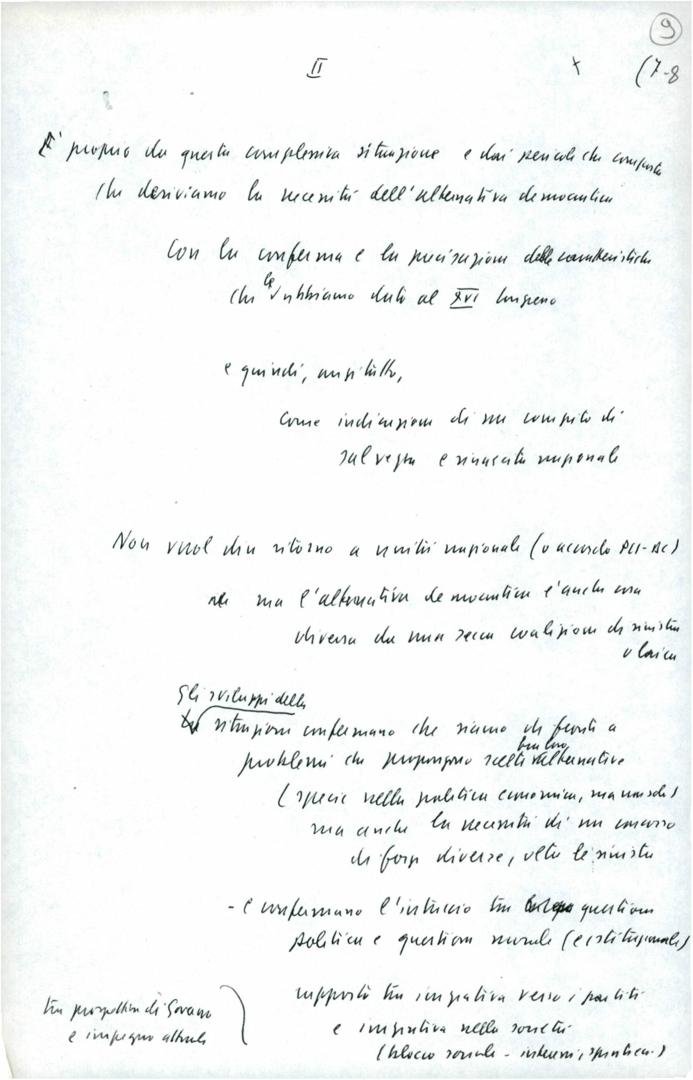 9
II
(7-8
È proprio da questa complessiva situazione e dai pericoli che comporta
che deriviamo la necessità dell'alternativa democratica
Con la conferma e la precisazione delle caratteristiche
che le abbiamo dato al XVI Congresso
e quindi, anzitutto,
come indicazione di un compito di
salvezza e rinascita nazionale
Non vuol dire ritorno a unità nazionale (o accordo PCI-DC)
ma l'alternativa democratica è anche cosa
diversa da una secca coalizione di sinistra
o laica
Gli sviluppi della
situazione confermano che siamo di fronte a
problemi che propongono scelte tra loro alternative
(specie nella politica economica, ma non solo)
ma anche la necessità di un concorso
di forze diverse, oltre le sinistre
- e confermano l'intreccio tra questione
politica e questione morale (e istituzionale)
rapporto tra iniziativa verso i partiti
e iniziativa nella società
(blocco sociale -
tra prospettiva di Governo
e impegno attuale